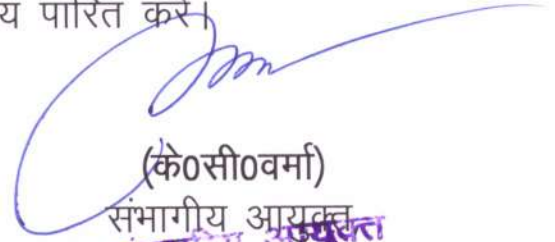 य पारित करें।
(के0सी0वर्मा)
संभागीय आयुक्त
आयुक्त